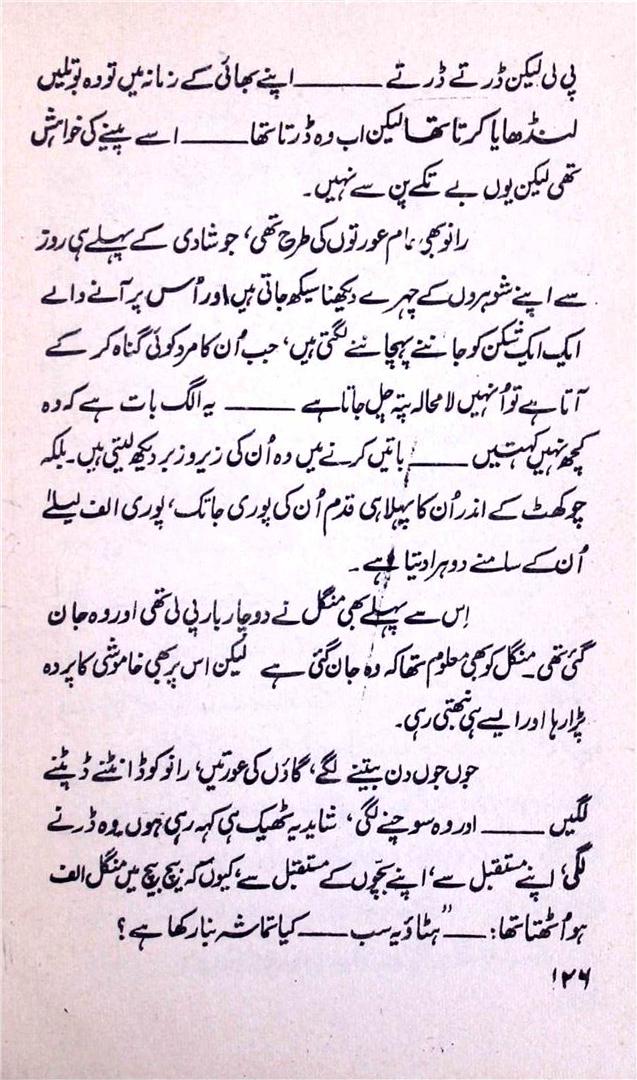 پی لی لیکن ڈرتے ڈرتے ——— اپنے بھائی کے زمانہ میں تو وہ بوتلیں
لنڈھایا کرتا تھا لیکن اب وہ ڈرتا تھا ——— اسے پینے کی خواہش
تھی لیکن یوں بے تکے پن سے نہیں۔
رانو بھی عام عورتوں کی طرح تھی، جو شادی کے پہلے ہی روز
سے اپنے شوہروں کے چہرے دیکھنا سیکھ جاتی ہیں اور اُس پر آنے والے
ایک ایک شکن کو جاننے پہچاننے لگتی ہیں، جب اُن کا مرد کوئی گناہ کر کے
آتا ہے تو اُنہیں لامحالہ پتہ چل جاتا ہے ——— یہ الگ بات ہے کہ وہ
کچھ نہیں کہتیں ——— باتیں کرنے میں وہ اُن کی زیر و زبر دیکھ لیتی ہیں۔ بلکہ
چوکھٹ کے اندر اُن کا پہلا ہی قدم اُن کی پوری جاتک، پوری الف لیلےٰ
اُن کے سامنے دوہرا دیتا ہے۔
اِس سے پہلے بھی منگل نے دو چار بار پی لی تھی اور وہ جان
گئی تھی۔ منگل کو بھی معلوم تھا کہ وہ جان گئی ہے لیکن اس پر بھی خاموشی کا پردہ
پڑا رہا اور ایسے ہی نبھتی رہی۔
جوں جوں دن بیتنے لگے، گاؤں کی عورتیں، رانو کو ڈانٹنے ڈپٹنے
لگیں ——— اور وہ سوچنے لگی، شاید یہ ٹھیک ہی کہہ رہی ہوں۔ وہ ڈرنے
لگی، اپنے مستقبل سے، اپنے بچوں کے مستقبل سے، کیوں کہ بیچ بیچ میں منگل الف
ہو اُٹھتا تھا: — "ہٹاؤ یہ سب —— کیا تماشہ بنا رکھا ہے؟
۱۲۶